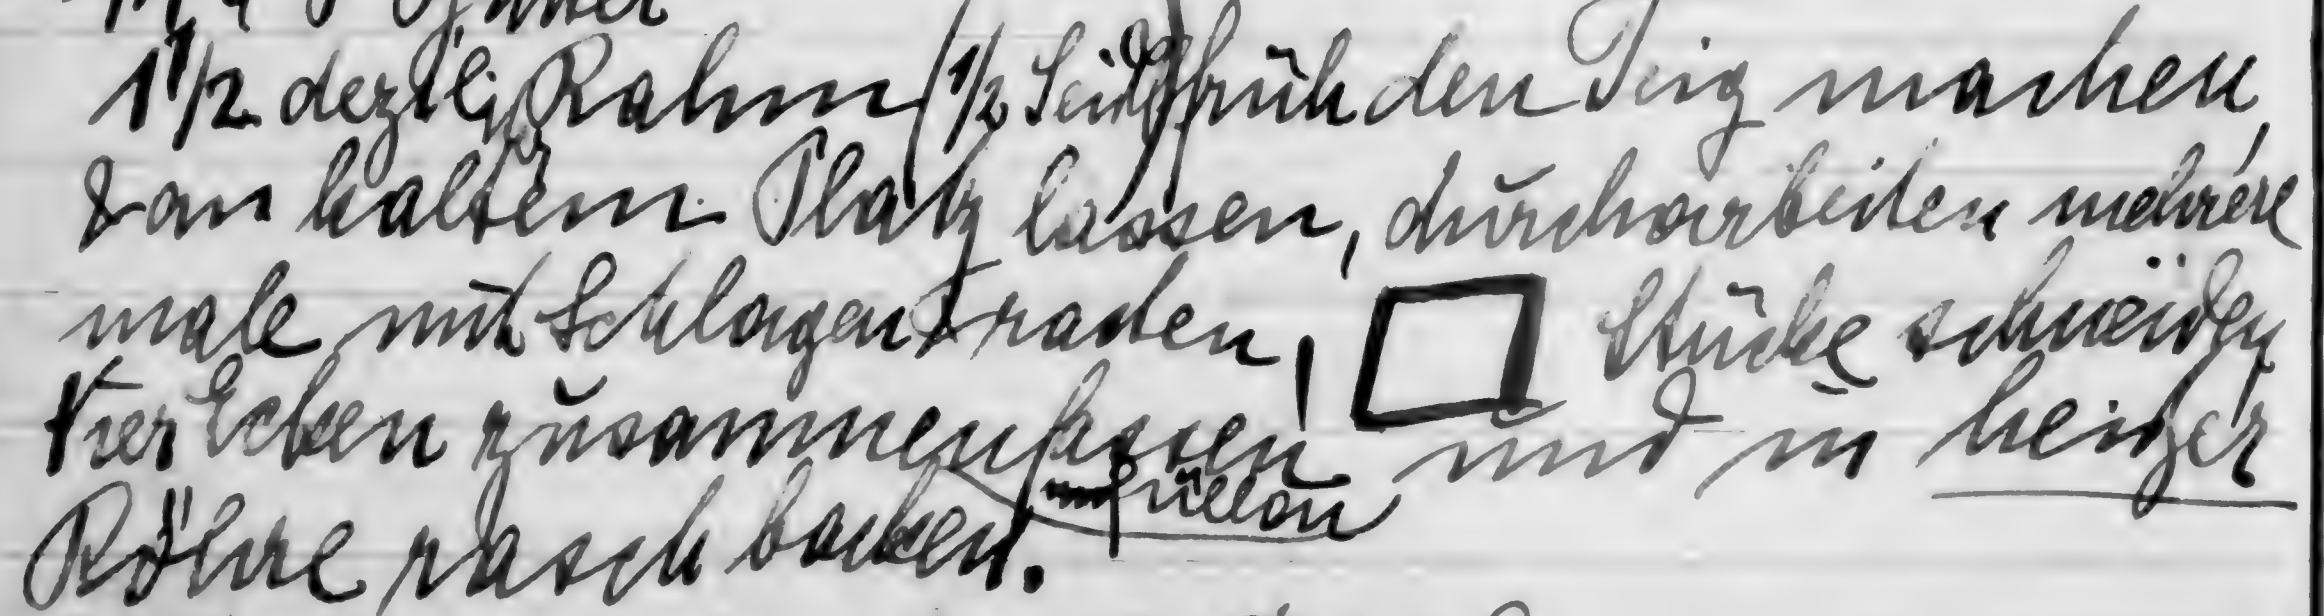 1 1/2 deziltr Rahm (1/2 Seidl) früh den Teig machen,
& an kaltem Platz lassen, durcharbeiten mehrere
male mit Schlagen & rasten, Stücke schneiden
vier Ecken zusammenfassen füllen und in heißer
Röhre rasch backen.